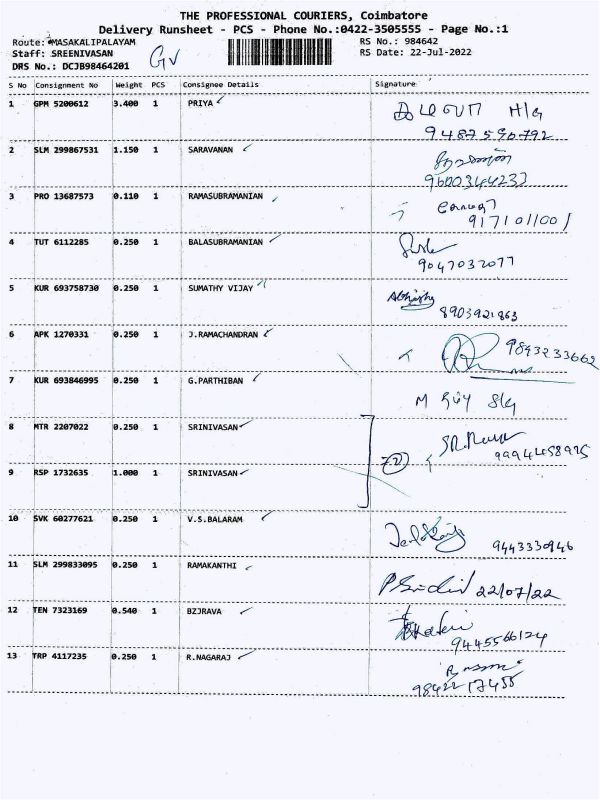 THE PROFESSIONAL COURIERS, Coimbatore
Delivery Runsheet - PCS - Phone No.:0422-3505555 - Page No.:1
Route: MASAKALIPALAYAM RS No.: 984642
Staff: SREENIVASAN RS Date: 22-Jul-2022
DRS No.: DCJB98464201
GV
S No Consignment No Weight PCS Consignee Details Signature
1 GPM 5200612 3.400 1 PRIYA
9487590792
2 SLM 299867531 1.150 1 SARAVANAN
9600344233
3 PRO 13687573 0.110 1 RAMASUBRAMANIAN
9171011001
4 TUT 6112285 0.250 1 BALASUBRAMANIAN
9047032077
5 KUR 693758730 0.250 1 SUMATHY VIJAY
8903921863
6 APK 1270331 0.250 1 J.RAMACHANDRAN 9843233662
7 KUR 693846995 0.250 1 G.PARTHIBAN
8 MTR 2207022 0.250 1 SRINIVASAN
9994458975
9 RSP 1732635 1.000 1 SRINIVASAN
10 SVK 60277621 0.250 1 V.S.BALARAM
9443330946
11 SLM 299833095 0.250 1 RAMAKANTHI
22/07/22
12 TEN 7323169 0.540 1 BZJRAVA
9445566124
13 TRP 4117235 0.250 1 R.NAGARAJ
98422 17455